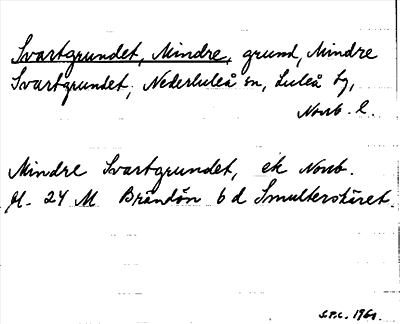 Svartgrundet, Mindre, grund, Mindre
Svartgrundet, Nederluleå sn, Luleå tg,
Norrb. l.
Mindre Svartgrundet, ek Norrb.
Bl. 24 M Brändön 6 d Smulterskäret.
S.P.C. 1960.